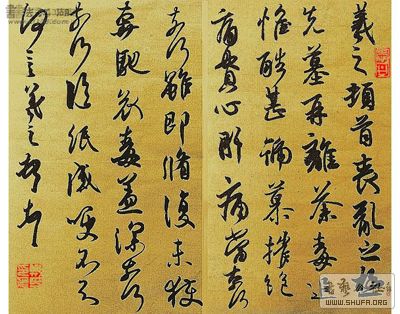 羲之頓首喪亂之極
先墓再離荼毒追
惟酷甚號慕摧絕
痛貫心肝痛當奈何
奈何雖即脩復未獲
奔馳哀毒益深奈何
奈何臨紙感哽不知
何言羲之頓首
WWW.SHUFA.ORG